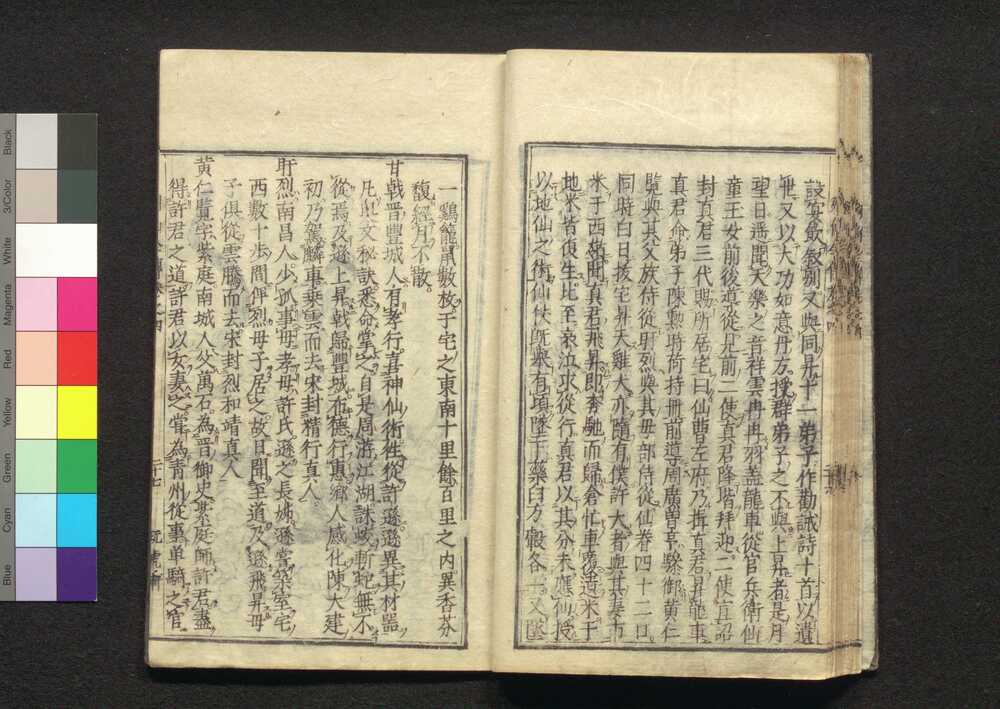 設宴飲敍別又與同昇十一弟子作勸誡詩十首以遺
世又以大功如意丹方授群弟子之不與上昇者是月
望日遥聞天樂之音祥雲冉冉羽蓋龍車從官兵衛仙
童王女前後導從見前二使真君降階拜迎二使宣詔
封真君三代賜所居宅曰仙曹左府乃揖真君昇龍車
真君命弟子陳勲時荷持册前導周廣曽亨驂御黄仁
覽與其父族侍從盱烈與其母部侍從仙眷四十二口
同時白日拔宅昇天雞犬亦隨有僕許大者與其妻市
米于西嶺聞真君飛昇即奔馳而歸倉忙車覆遺米于
地米皆復生比至哀泣求從行真君以其分未應仙授
以地仙之術仙仗既舉有頃墜下藥臼方轂各一又墜
一鷄籠鼠數枚于宅之東南十里餘百里之内異香芬
馥經月不散
甘戟晋豐城人有孝行喜神仙術往從許遜遜異其材器
凡此文秘訣悉命掌之自是周游江湖誅蛟斬蛇無不
從焉及遜上昇戟歸豐城布德行惠鄉人感化陳大建
初乃駕麟車乗雲而去宋封精行真人
盱烈南昌人少孤事母孝母許氏遜之長姊遜嘗築室宅
西數十歩間俾烈母子居之故日聞至道及遜飛昇母
子俱從雲騰而去宋封烈和靖真人
黄仁覽字紫庭南城人父萬石為晋御史紫庭師許君盡
得許君之道許君以女妻之嘗為青州從事単騎之官
二十七
Black
3/Color
White
Magenta
Red
Yellow
Green
Cyan
Blue